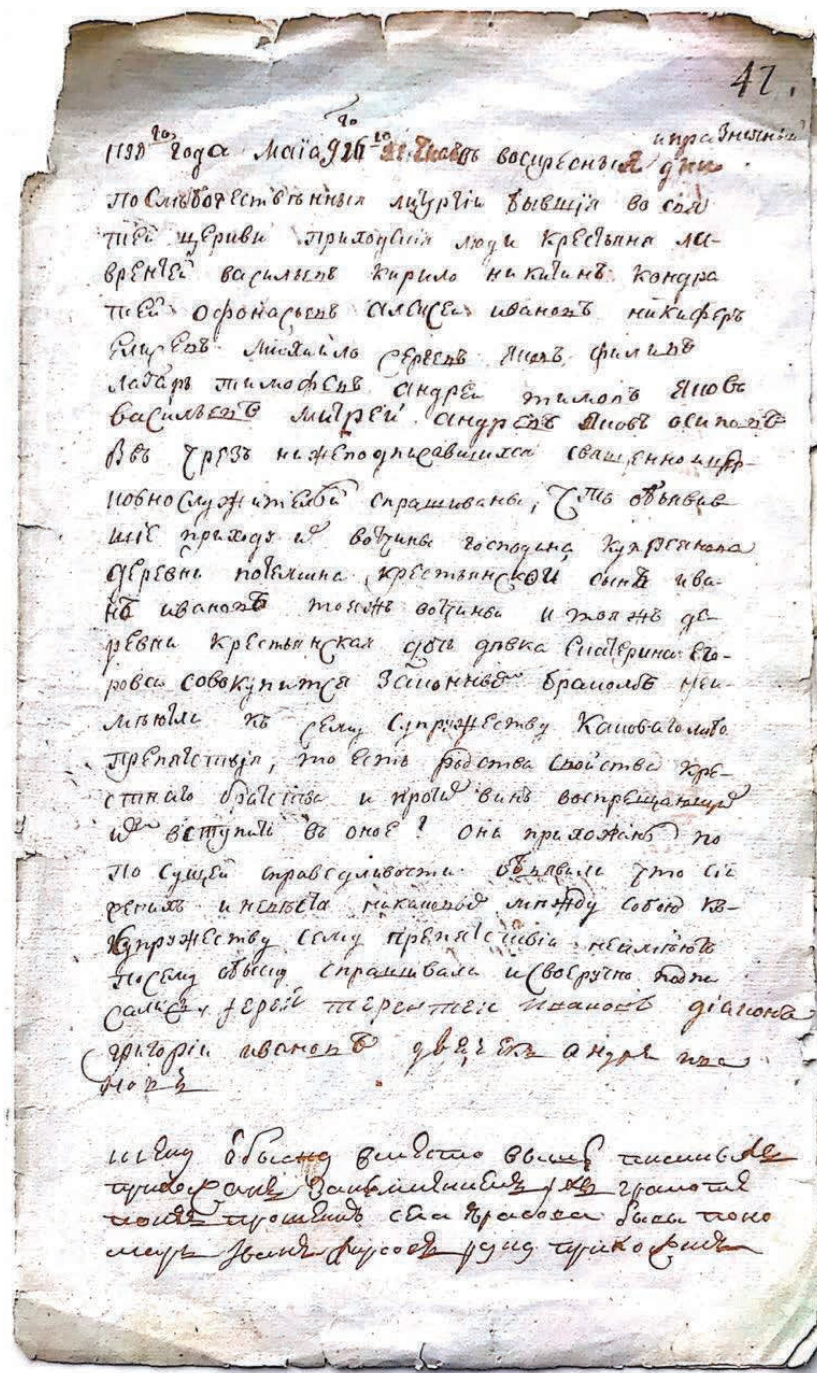 47.
го
и празничный
года Маїа 9 26 го воскресныя дни
после божественныя литургїи бывшїя во свя
тей церкви приходскїя люди крестьяна ла-
врентей васильевъ кирило никитинъ кондра
тей офонасьевъ алексей ивановъ никифоръ
елисеевъ михайло сергеевъ яковъ филипъ
лазарь тимофеевъ андрей яковъ
васильевъ митрей андреевъ яковъ осиповъ
чрезъ нижеподписавшихся священно и цер-
ковнослужителей спрашиваны, что объявив
шїе прихода и вотчины господина
деревни крестьянской сынъ ива-
нъ ивановъ тояжъ вотчины и тояжъ де-
ревни крестьянская дочь девка екатерина его-
рова совокупится законнымъ бракомъ неи-
меютли къ сему супружеству каковаголибо
препятствїя, то есть родства свойства кре-
стнаго братства и протчихъ винъ воспрещающихъ
ихъ вступить въ оное? они прихожанъ по
по сущей справедливости объявили что сїи
женихъ и невеста никакова между собою къ
супружеству сему препятствїя неимеютъ
по сему обыску спрашивали и своеручно подпи
сались, їерей терентей ивановъ дїаконъ
григорїи ивановъ дьячекъ андрей ива
новъ
к сему обыску вместо выше писанныхъ
прихожанъ за неуменїемъ ихъ грамоте
по ихъ прошенїю села бывы поно
марь иванъ руку приложилъ